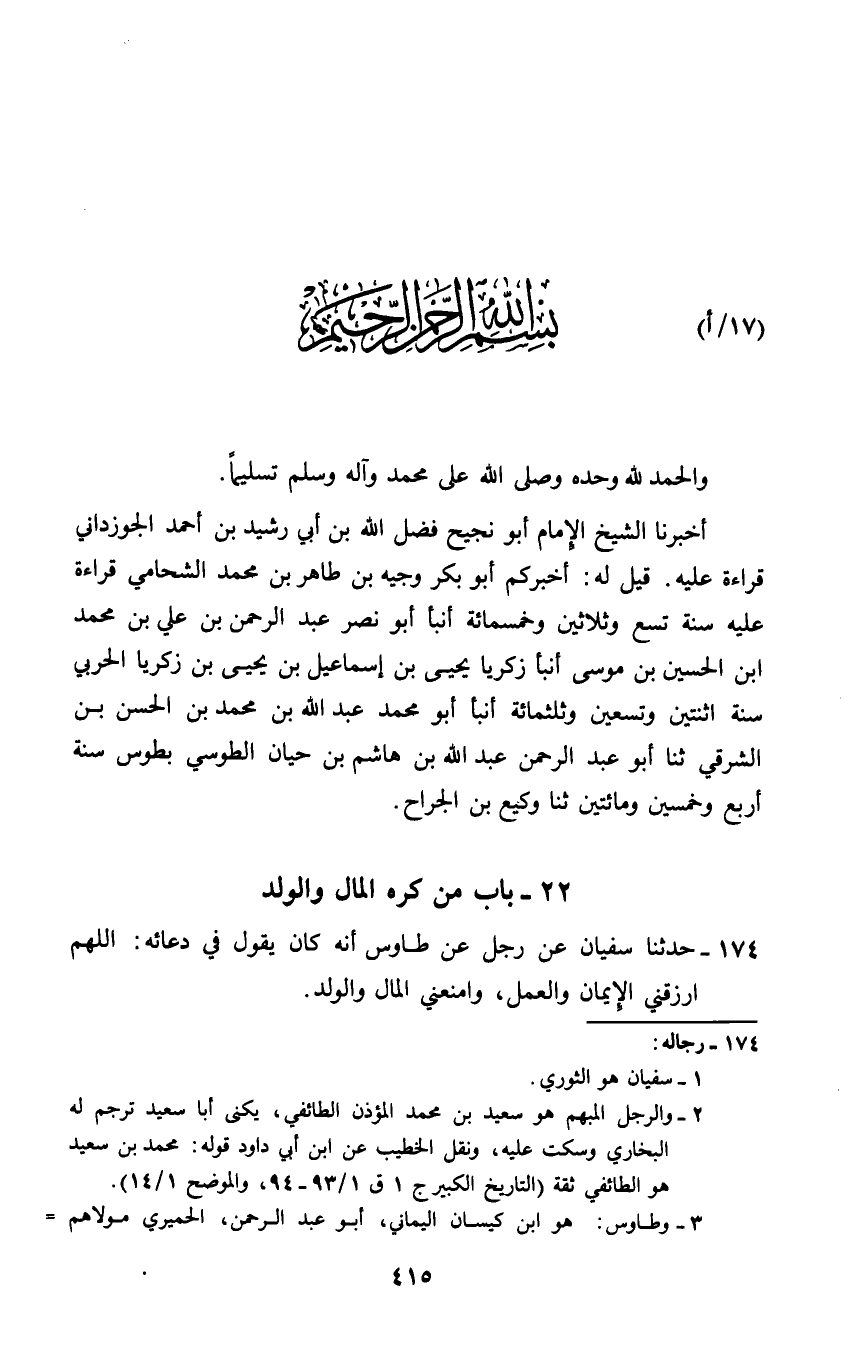 (١٧/أ) بسم الله الرحمن الرحيم
والحمد لله وحده وصلى الله على محمد وآله وسلم تسليماً.
أخبرنا الشيخ الإمام أبو نجيح فضل الله بن أبي رشيد بن أحمد الجوزداني
قراءة عليه. قيل له: أخبركم أبو بكر وجيه بن طاهر بن محمد الشحامي قراءة
عليه سنة تسع وثلاثين وخمسمائة أنبأ أبو نصر عبد الرحمن بن علي بن محمد
ابن الحسين بن موسى أنبأ زكريا يحيـى بن إسماعيل بن يحيـى بن زكريا الحربي
سنة اثنتين وتسعين وثلثمائة أنبأ أبو محمد عبد الله بن محمد بن الحسن بـن
الشرقي ثنا أبو عبد الرحمن عبد الله بن هاشم بن حيان الطوسي بطوس سنة
أربع وخمسين ومائتين ثنا وكيع بن الجراح.
٢٢ ـ باب من كره المال والولد
١٧٤ ـ حدثنا سفيان عن رجل عن طـاوس أنه كان يقول في دعائه: اللهم
ارزقني الإيمان والعمل، وامنعني المال والولد.
١٧٤ ـ رجاله:
١ ـ سفيان هو الثوري.
٢ ـ والرجل المبهم هو سعيد بن محمد المؤذن الطائفي، يكنى أبا سعيد ترجم له
البخاري وسكت عليه، ونقل الخطيب عن ابن أبي داود قوله: محمد بن سعيد
هو الطائفي ثقة (التاريخ الكبير ج ١ ق ٩٣/١ ـ ٩٤، والموضح ١٤/١).
٣ ـ وطـاوس: هو ابن كيسـان اليماني، أبـو عبد الـرحمن، الحميري مـولاهم =
٤١٥